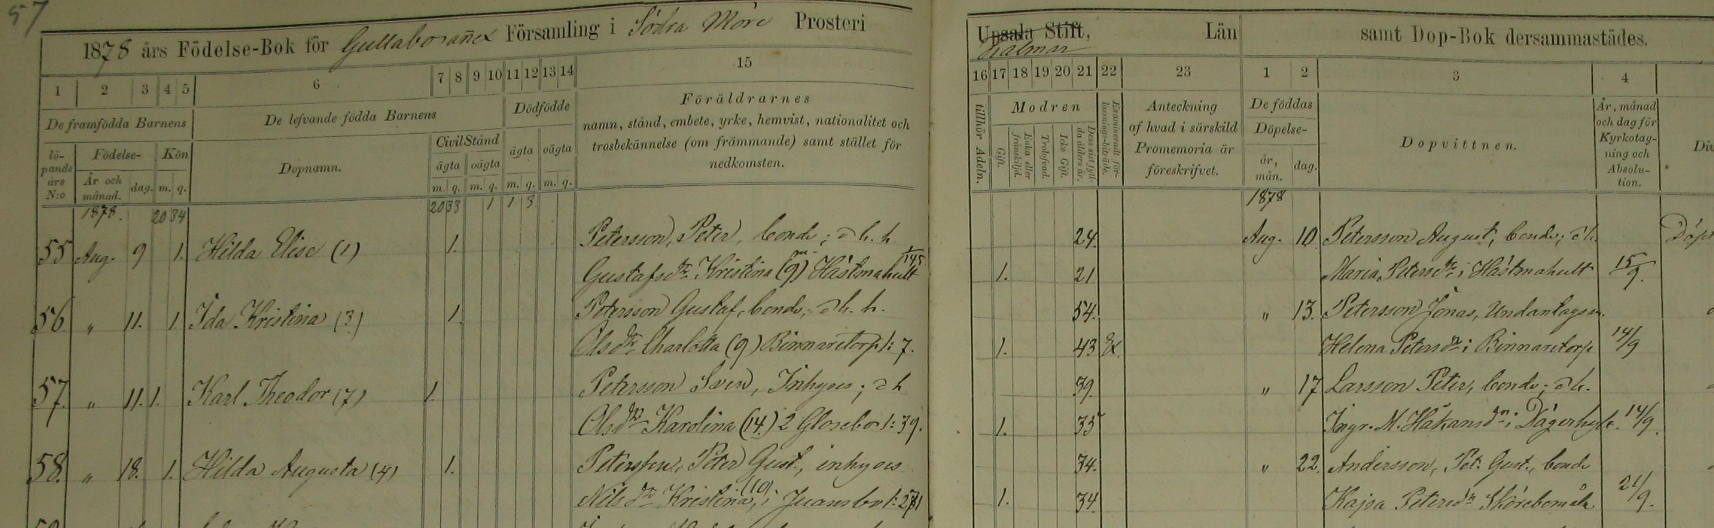 57
1878 års Födelse-Bok för Gullabo Församling i Södra Möre Prosteri
Upsala Stift, Län samt Dop-Bok dersammastädes.
Kalmar
1 2 3 4 5 6 7 8 9 10 11 12 13 14 15
16 17 18 19 20 21 22 23 1 2 3 4
De framfödda Barnens
De lefvande födda Barnens
Dödfödde
Föräldrarnes
namn, stånd, embete, yrke, hemvist, nationalitet och
trosbekännelse (om främmande) samt stället för
nedkomsten.
löpande års N:o
Födelse-
År och månad.
dag.
Kön
m. q.
Dopnamn.
Civil Stånd
ägta oägta
m. q. m. q.
ägta oägta
m. q. m. q.
tillhör Adeln.
Modren
Gift.
Enka eller frånskild.
Trolofvad.
Icke Gift.
Anteckning
af hvad i särskild
Promemoria är
föreskrifvet.
De föddas
Döpelse-
år, mån.
dag.
Dopvittnen.
År, månad
och dag för
Kyrkotag-
ning och
Absolu-
tion.
1878. 20 34 20 33 1 1 3
1878
55 Aug. 9 1. Hilda Elise (1) 1. Petersson, Peter, bonde; d. h. h. 24. Aug. 10. Petersson August, bonde; d. h.
Gustafsdr Kristina (9) Hästmahult 1. 21 Maria Petersdr i Hästmahult 15/9.
56 " 11. 1. Ida Kristina (3.) 1. Petersson Gustaf, bonde; d. h. h. 54. " 13. Petersson Jonas, Undantagsm.
Olsdr Charlotta (9) Binnaretorp 1: 7. 1. 43 Helena Petersdr i Binnaretorp 14/9
57. " 11. 1. Karl Theodor (7) 1. Petersson Sven, Inhyses; d. h 39. " 17 Larsson Peter, bonde; d. h.
Olsdr Karolina (14) 2 Glosebo 1: 39. 1. 35 Ingr. M. Håkansdr i Dägerhylt. 14/9.
58. " 18. 1. Hilda Augusta (4) 1. Petersson, Peter Gust., inhyses 34. " 22. Andersson, Pet. Gust., bonde
Nilsdr Kristina (10) i 1. 34. Kajsa Petersdr Skörebomåla 21/9.